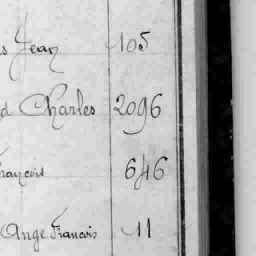 s Jean 105
d Charles 2096
François 646
Ange François 11